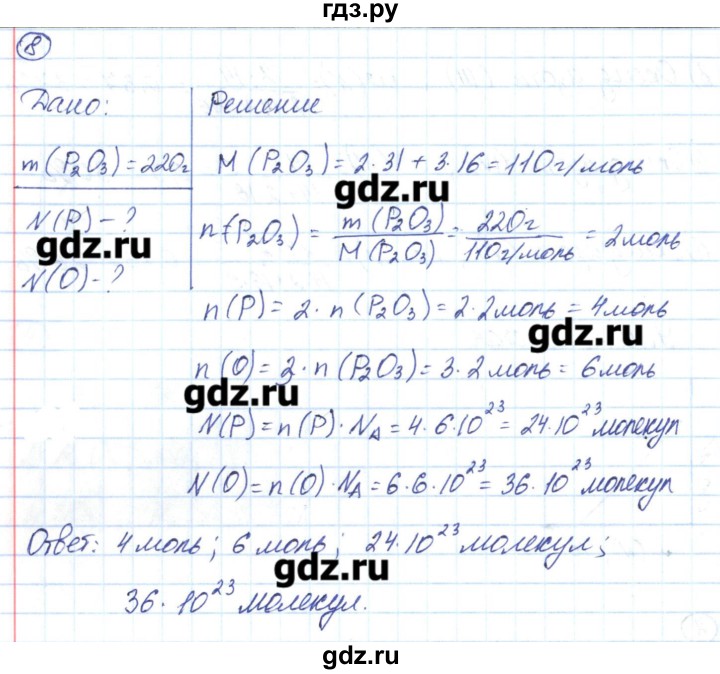 гдз.ру
8
Дано:
Решение
m(P₂O₃)=220г
M(P₂O₃)=2·31+3·16=110г/моль
N(P)-?
gdz.ru
N(O)-?
gdz.ru
n(P₂O₃) = m(P₂O₃)/M(P₂O₃) = 220г/110г/моль = 2моль
n(P)=2·n(P₂O₃)=2·2моль=4моль
gdz.ru
n(O)=3·n(P₂O₃)=3·2моль=6моль
gdz.ru
N(P)=n(P)·Nₐ=4·6·10²³=24·10²³молекул
N(O)=n(O)·Nₐ=6·6·10²³=36·10²³молекул
Ответ: 4моль; 6моль; 24·10²³молекул;
gdz.ru
36·10²³молекул.
gdz.ru